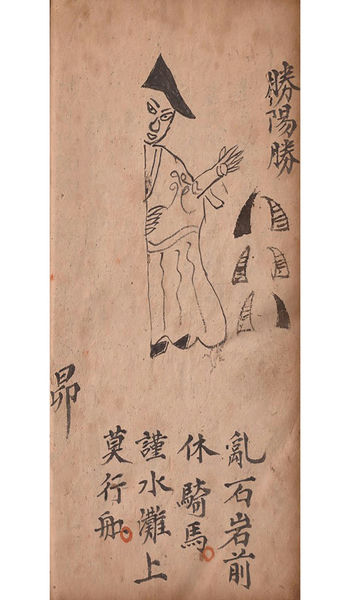 勝陽勝
亂石岩前
休騎馬
謹水灘上
莫行船
昴